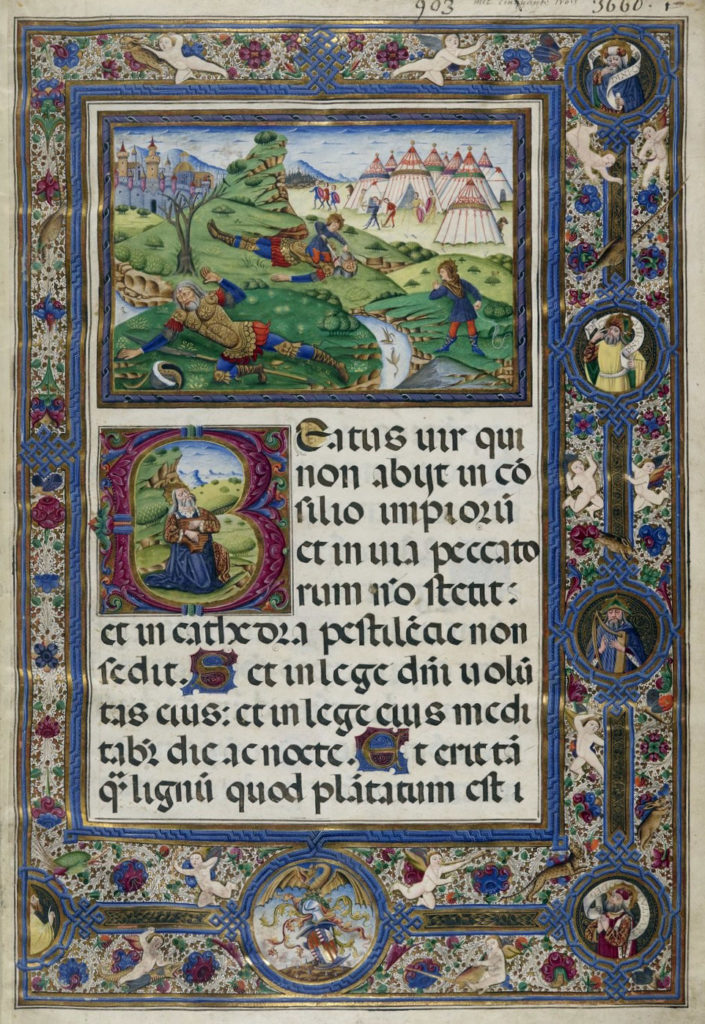 903 3660.
Beatus uir qui
non abijt in cō
silio impiorū
et in uia peccato
rum nō stetit:
et in cathedra pestilēcie non
sedit. Set in lege dn̄i uolū
tas eius: et in lege eius medi
tabr̄ die ac nocte. Et erit tā
qͣ lignū quod plātatum est i